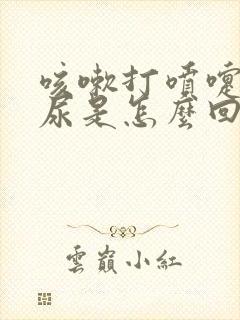 咳嗽打噴嚏
尿是怎麼回
雲巔小紅